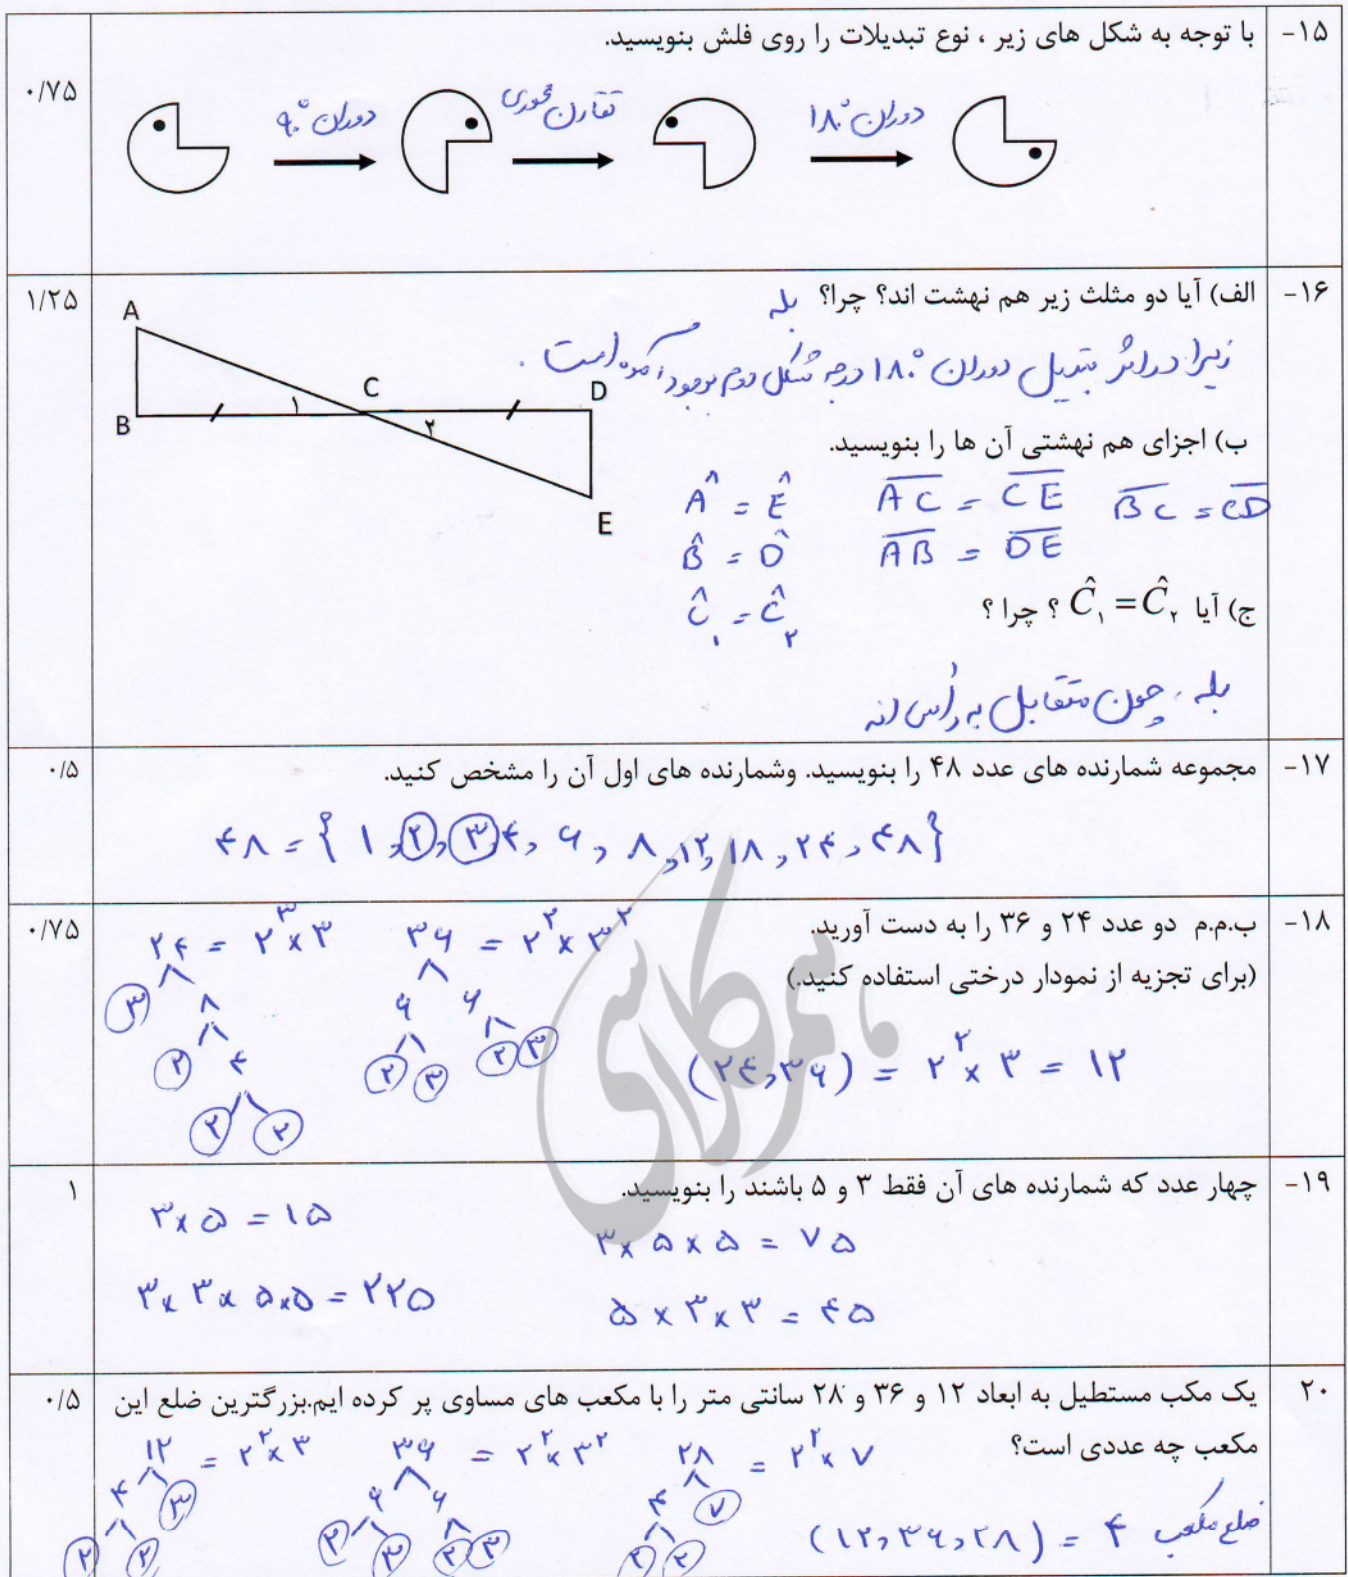 ۱۵- با توجه به شکل های زیر ، نوع تبدیلات را روی فلش بنویسید.
۰/۷۵
دوران ۹۰° تقارن محوری دوران ۱۸۰°
۱۶- الف) آیا دو مثلث زیر هم نهشت اند؟ چرا؟ بله
۱/۲۵
زیرا در اثر تبدیل دوران ۱۸۰° درجه شکل دوم بوجود آمده است .
A
B
C
D
E
۱
۲
ب) اجزای هم نهشتی آن ها را بنویسید.
Â = Ê AC = CE BC = CD
B̂ = D̂ AB = DE
Ĉ۱ = Ĉ۲
ج) آیا Ĉ۱ = Ĉ۲ ؟ چرا ؟
بله ، چون متقابل به رأس اند
۱۷- مجموعه شمارنده های عدد ۴۸ را بنویسید. وشمارنده های اول آن را مشخص کنید.
۰/۵
۴۸ = { ۱ , ۲ , ۳ , ۴ , ۶ , ۸ , ۱۲ , ۱۸ , ۲۴ , ۴۸ }
۱۸- ب.م.م دو عدد ۲۴ و ۳۶ را به دست آورید.
۰/۷۵
(برای تجزیه از نمودار درختی استفاده کنید.)
۲۴ = ۲³ × ۳ ۳۶ = ۲² × ۳²
۳ ۸ ۶ ۶
۲ ۴ ۲ ۳ ۲ ۳
۲ ۲
(۲۴,۳۶) = ۲² × ۳ = ۱۲
همکلاسی
۱۹- چهار عدد که شمارنده های آن فقط ۳ و ۵ باشند را بنویسید.
۱
۳ × ۵ = ۱۵ ۳ × ۵ × ۵ = ۷۵
۳ × ۳ × ۵ × ۵ = ۲۲۵ ۵ × ۳ × ۳ = ۴۵
۲۰ یک مکب مستطیل به ابعاد ۱۲ و ۳۶ و ۲۸ سانتی متر را با مکعب های مساوی پر کرده ایم.بزرگترین ضلع این
۰/۵
مکعب چه عددی است؟
۱۲ = ۲² × ۳ ۳۶ = ۲² × ۳² ۲۸ = ۲² × ۷
۴ ۳ ۶ ۶ ۴ ۷
۲ ۲ ۲ ۳ ۲ ۳ ۲ ۲
ضلع مکعب ۴ = (۱۲,۳۶,۲۸)